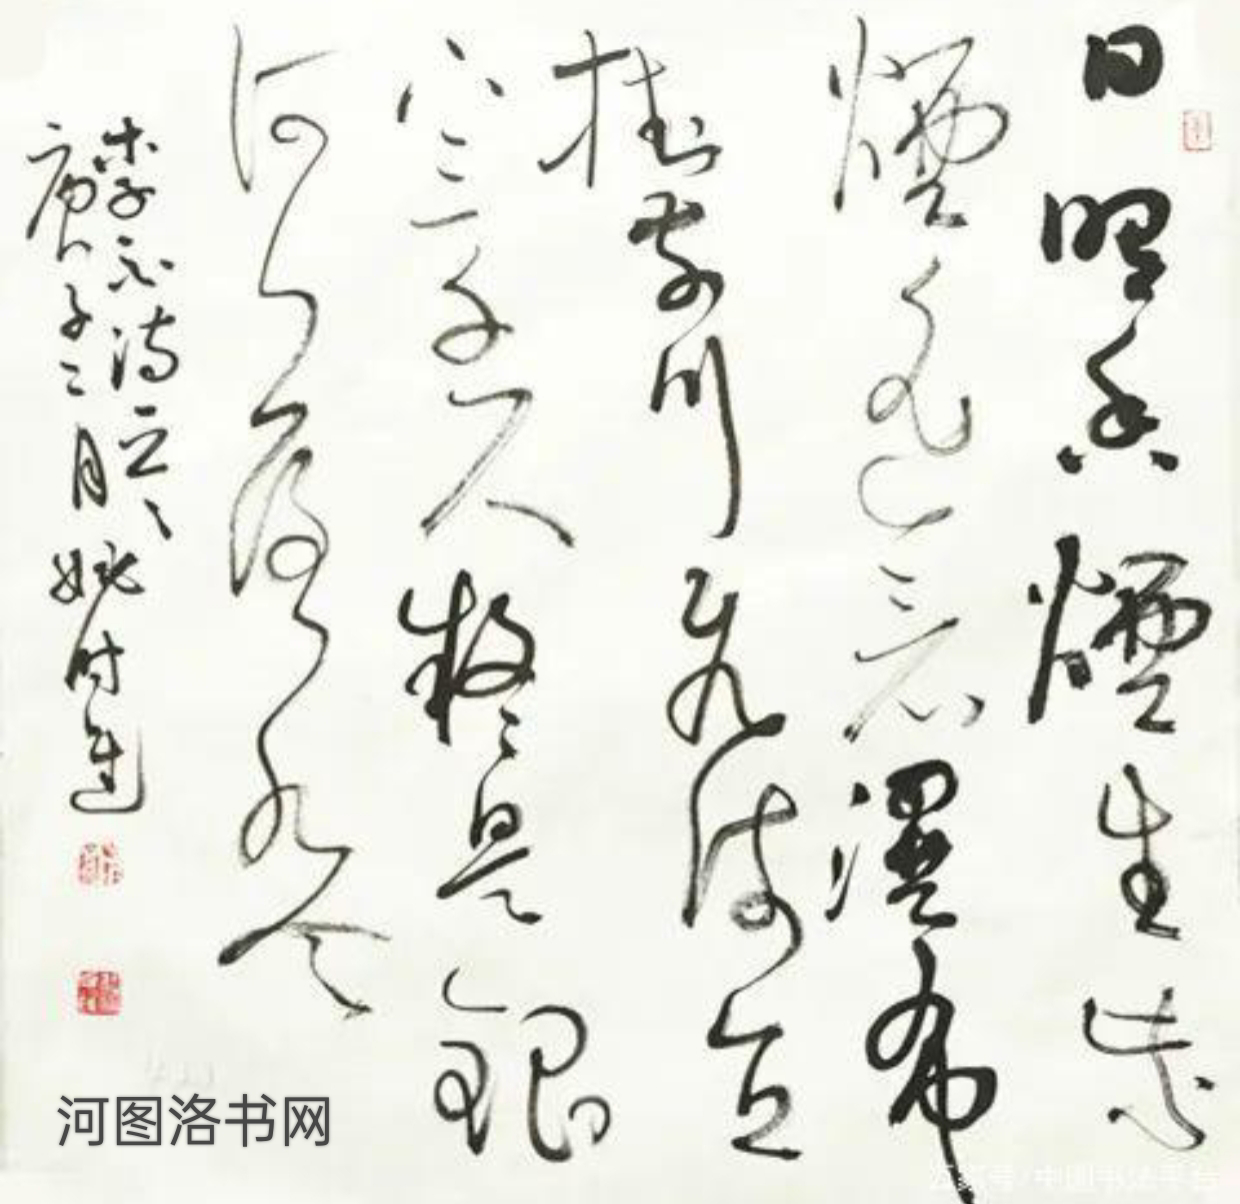 日照香爐生紫
煙遙看瀑布
掛前川飛流直
下三千尺疑是銀
河落九天
李白诗
庚子二月姚时进
河图洛书网